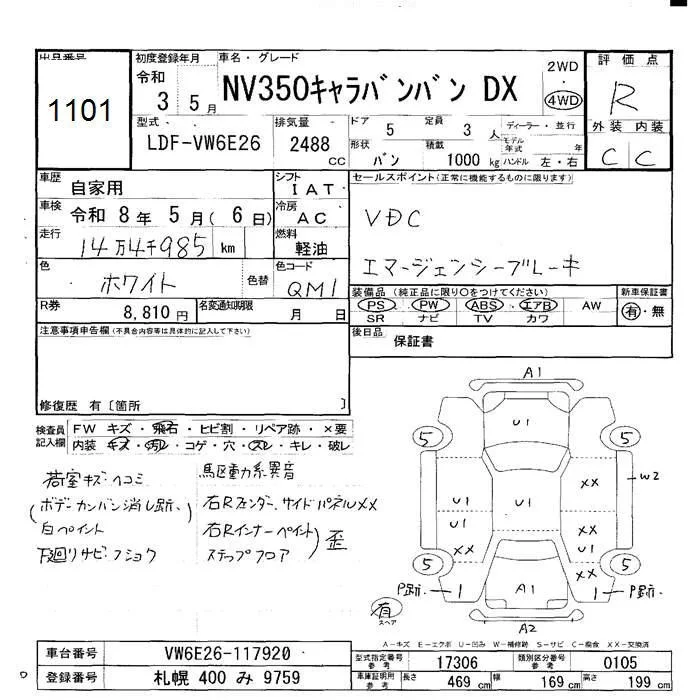 出品番号 1101
初度登録年月 令和 3年 5月
車名・グレード NV350キャラバンバン DX
2WD ・ 4WD
評価点 R
外装 内装
C C
型式 LDF-VW6E26
排気量 2488 cc
ドア 5 定員 3 人
形状 バン 積載 1000 kg
ディーラー・並行
モデル年式 年
ハンドル 左・右
車歴 自家用
シフト IAT
セールスポイント(正常に機能するものに限ります)
車検 令和 8年 5月( 6日)
冷房 AC
VDC
走行 14万4千985 km
燃料 軽油
エマージェンシーブレーキ
色 ホワイト 色替
色コード QM1
装備品 (純正品に限り○をつけてください)
新車保証書
PS PW ABS エアB AW
SR ナビ TV カワ
有・無
R券 8,810円
名変通知期限 月 日
後日品 保証書
注意事項申告欄(不具合内容等は具体的に記入して下さい)
修復歴 有〔箇所 〕
検査員記入欄
FW キズ・飛石・ヒビ割・リペア跡・×要
内装 キズ・汚れ・コゲ・穴・スレ・キレ・破レ
荷室キズ・ヘコミ
(ボデーカンバン消し跡、)
白ペイント
下廻りサビ・フショク
駆動系異音
右Rフェンダー、サイドパネルXX
右Rインナーペイント
ステップフロア
)歪
A1
U1
5 5
XX
W2
U1 U1
U1 XX
XX XX
5 5
P跡、 1 A1 1 P跡、
有
スペア
A2
A-キズ E-エクボ U-凹み W-補修跡 S-サビ C-腐食 XX-交換済
車台番号 VW6E26-117920
型式指定番号 参考 17306
類別区分番号 参考 0105
登録番号 札幌 400 み 9759
車庫証明用 参考
長さ 469 cm
幅 169 cm
高さ 199 cm